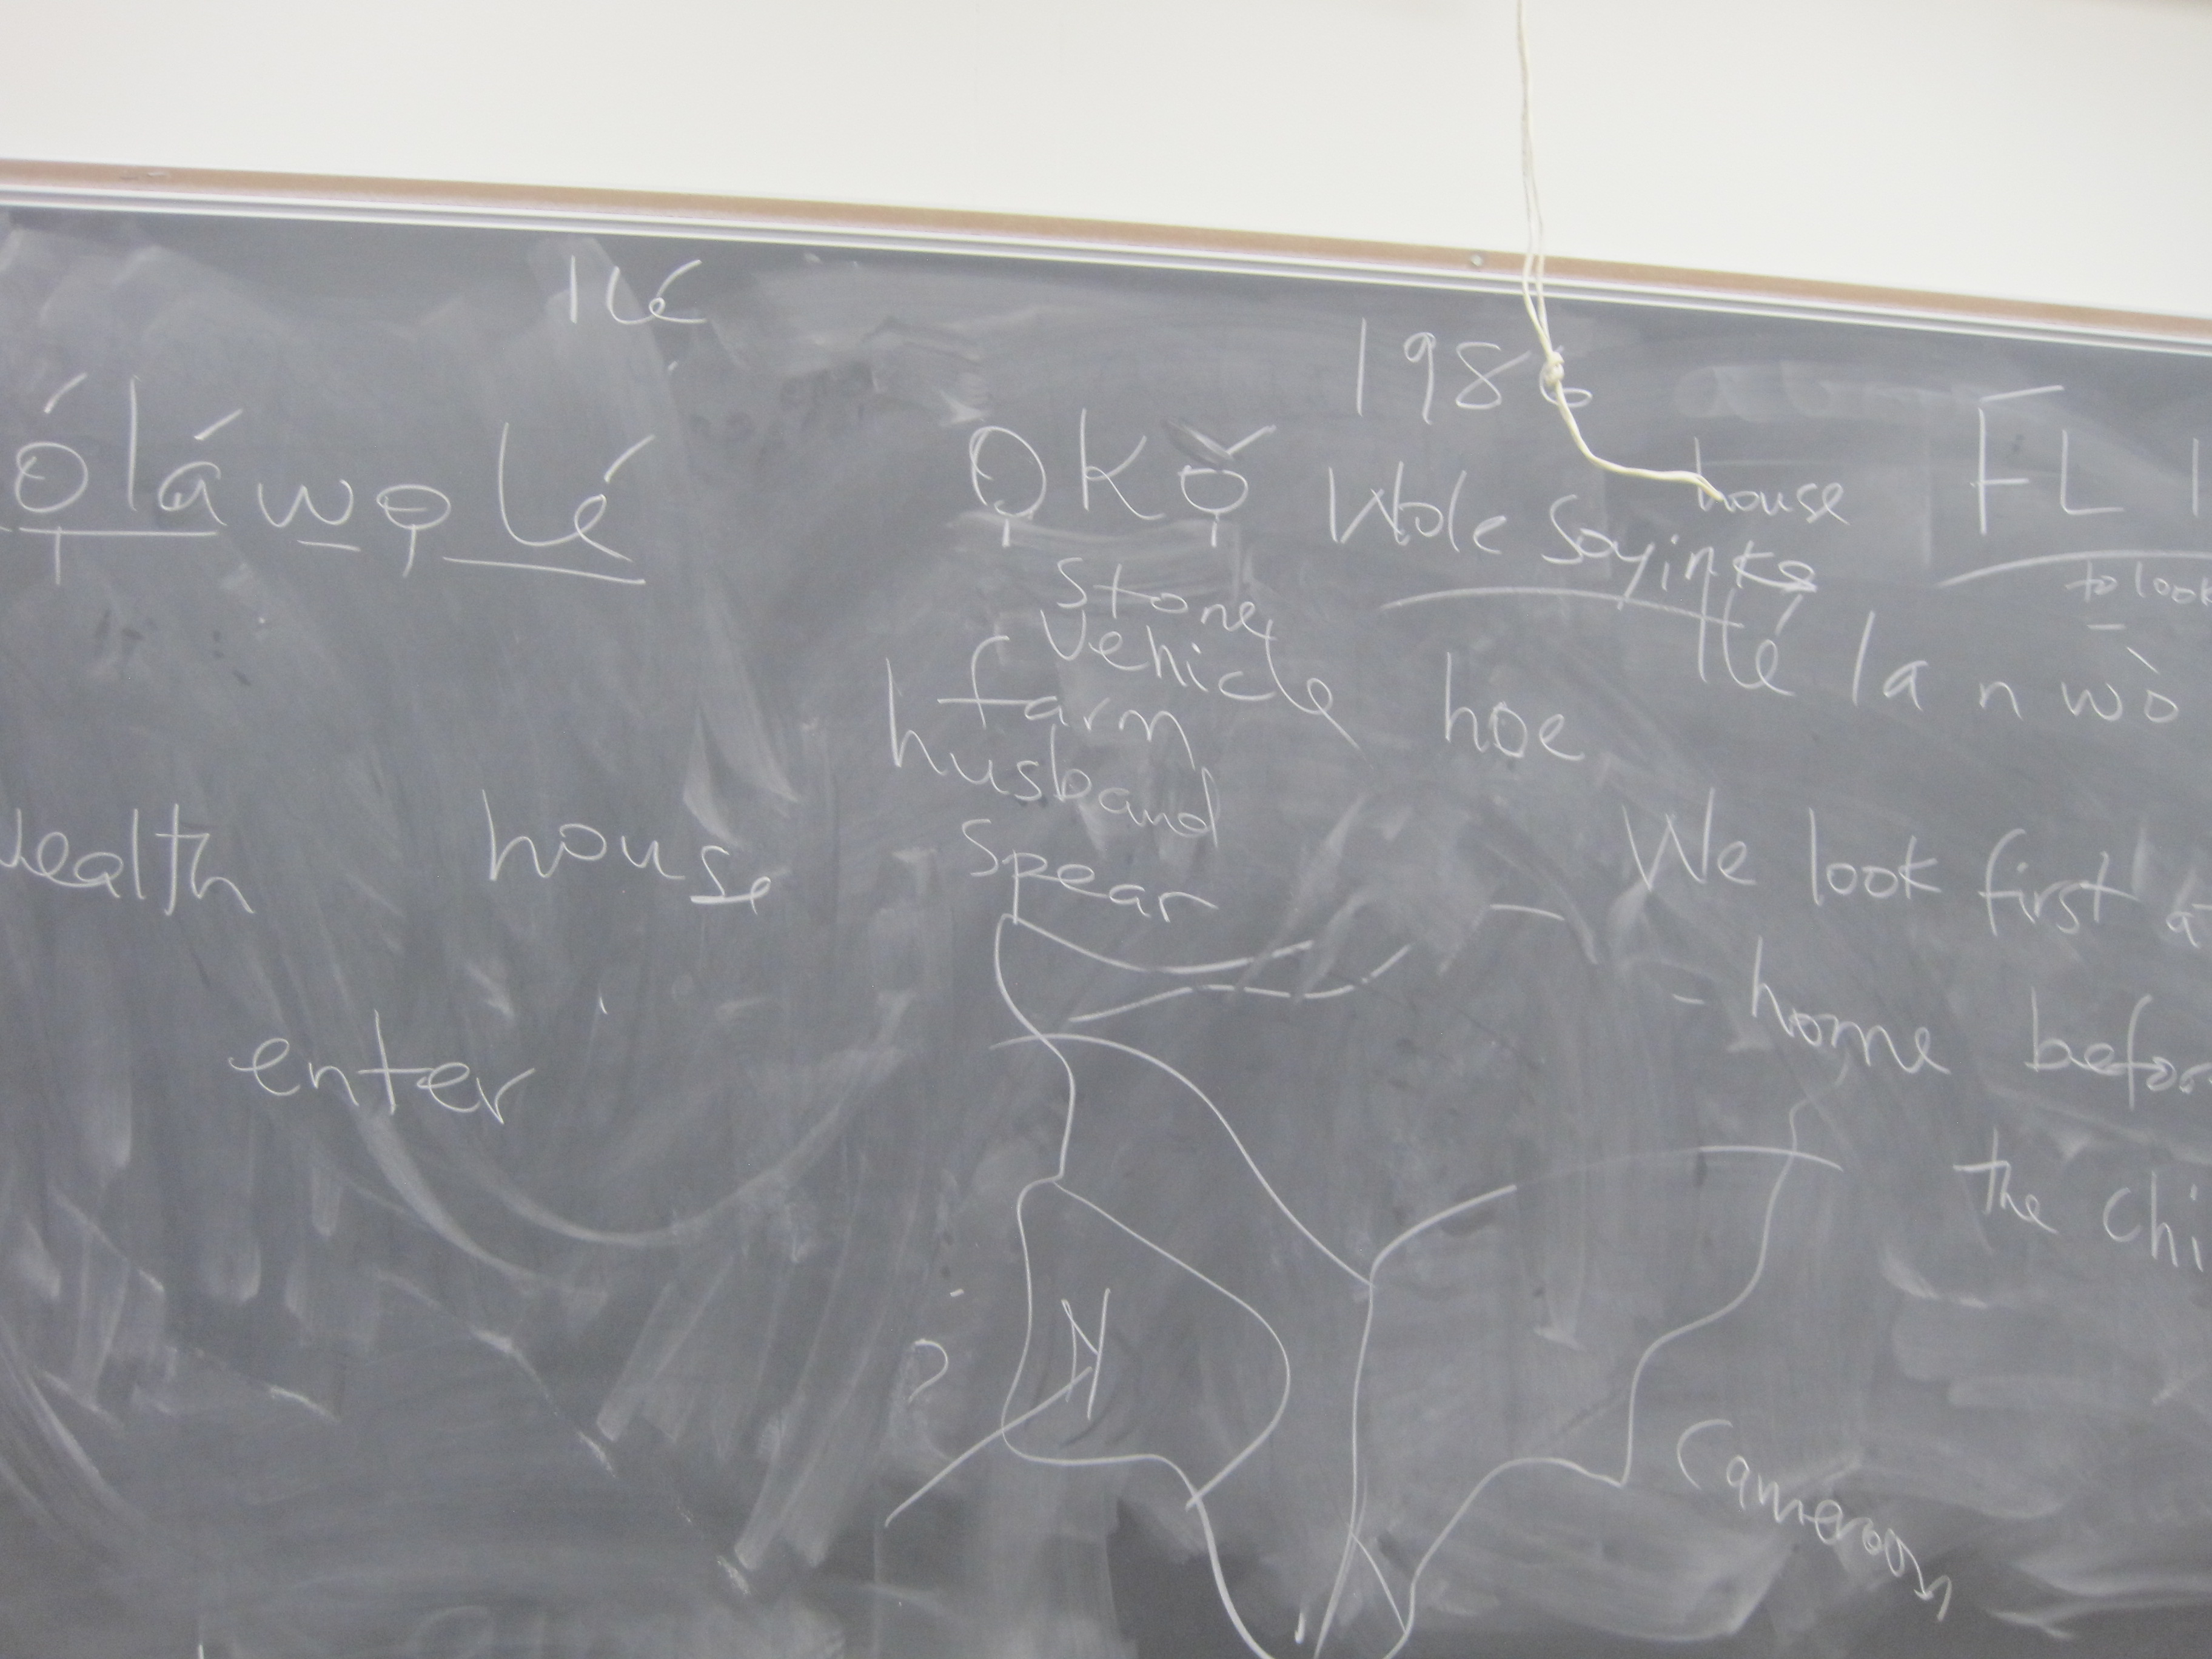 Ilé
ọ́láwọlé
house
enter
1986
ỌKỌ́
Stone
Vehicle
farm
husband
Spear
hoe
Wole Soyinka
house
FL
to look
Ilé la n wò
We look first
- home
the
N
Cameroon